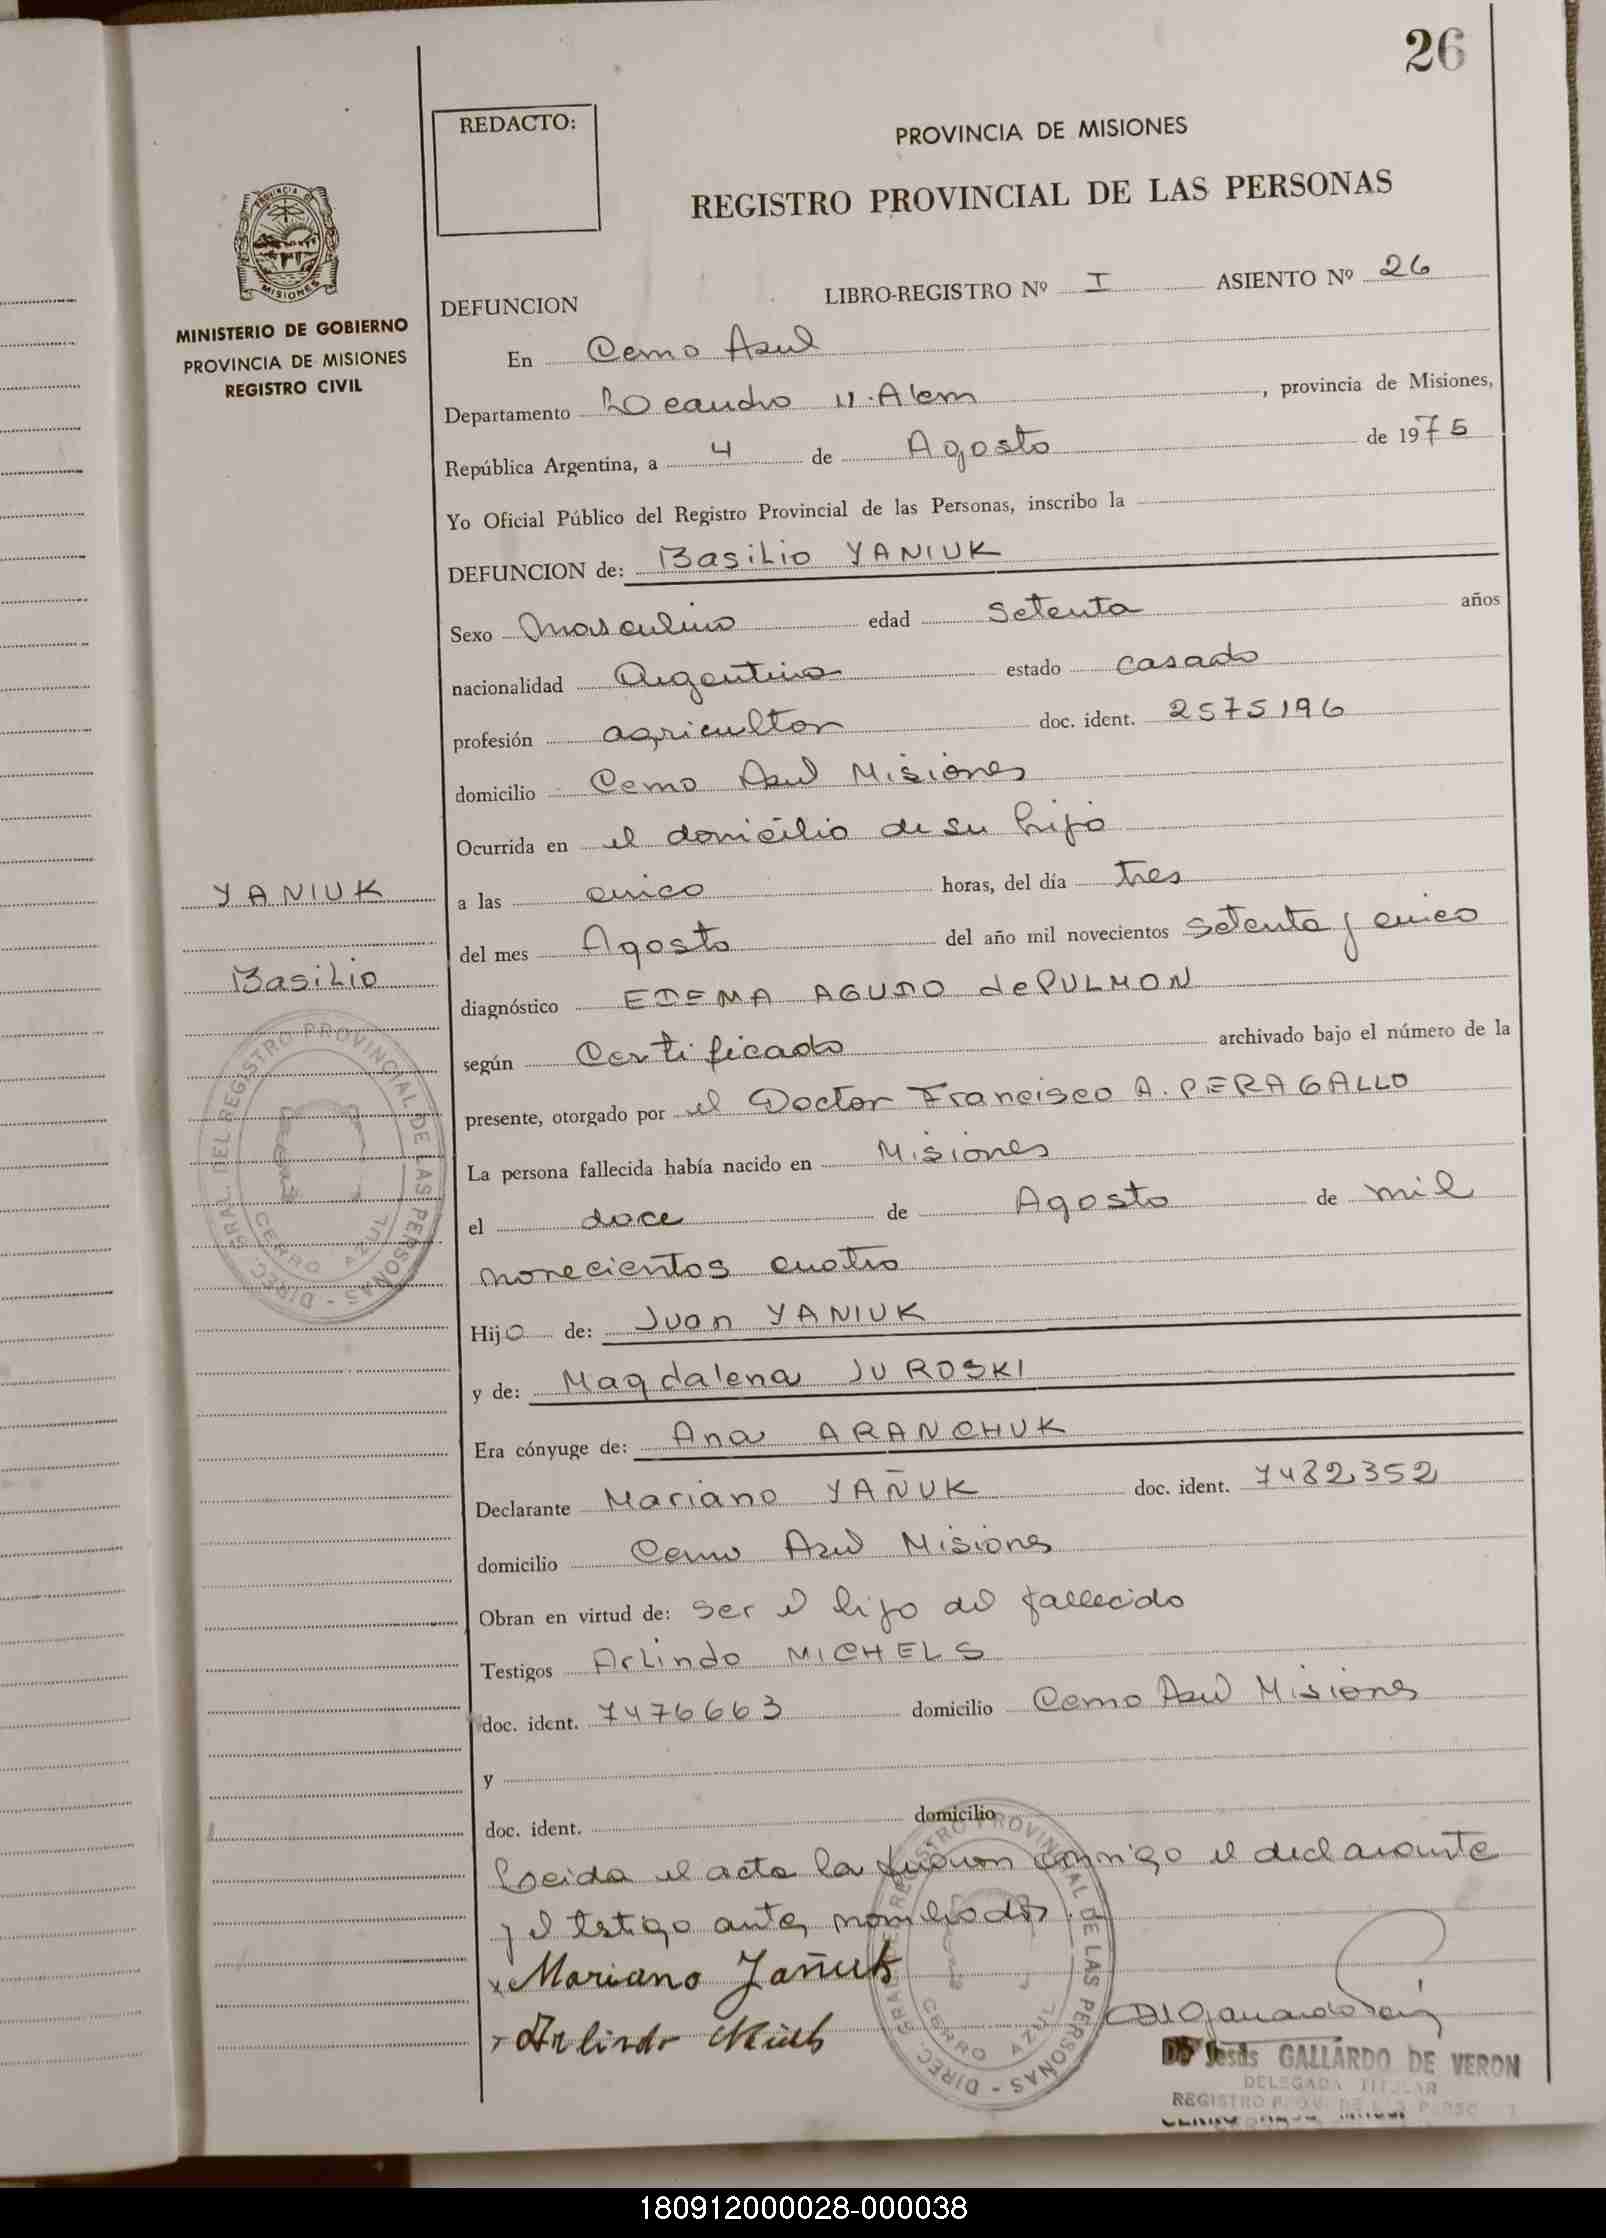 26
REDACTO:
PROVINCIA DE MISIONES
REGISTRO PROVINCIAL DE LAS PERSONAS
PROVINCIA DE
MISIONES
MINISTERIO DE GOBIERNO
PROVINCIA DE MISIONES
REGISTRO CIVIL
DEFUNCION LIBRO-REGISTRO Nº I ASIENTO Nº 26
En Cerro Azul
Departamento Leandro N. Alem, provincia de Misiones,
República Argentina, a 4 de Agosto de 1975
Yo Oficial Público del Registro Provincial de las Personas, inscribo la
DEFUNCION de: Basilio YANIUK
Sexo Masculino edad Setenta años
nacionalidad Argentino estado casado
profesión agricultor doc. ident. 2575196
domicilio Cerro Azul Misiones
Ocurrida en el domicilio de su hijo
a las cinco horas, del día tres
del mes Agosto del año mil novecientos setenta y cinco
diagnóstico EDEMA AGUDO de PULMON
según Certificado archivado bajo el número de la
presente, otorgado por el Doctor Francisco A. PERAGALLO
La persona fallecida había nacido en Misiones
el doce de Agosto de mil
novecientos cuatro
Hijo de: Juan YANIUK
y de: Magdalena JUROSKI
Era cónyuge de: Ana ARANCHUK
Declarante Mariano YAÑUK doc. ident. 7482352
domicilio Cerro Azul Misiones
Obran en virtud de: Ser el hijo del fallecido
Testigos Arlindo MICHELS
doc. ident. 7476663 domicilio Cerro Azul Misiones
y
doc. ident. domicilio
Leida el acta la firman conmigo el declarante
y el testigo antes nombrados.
x Mariano Yañuk
Arlindo
YANIUK
Basilio
DIREC. GRAL. DEL REGISTRO PROVINCIAL DE LAS PERSONAS -
CERRO AZUL
DIREC. GRAL. DEL REGISTRO PROVINCIAL DE LAS PERSONAS -
CERRO AZUL
Jesús GALLARDO DE VERON
DELEGADA TITULAR
REGISTRO PROV. DE LAS PERSO
180912000028-000038